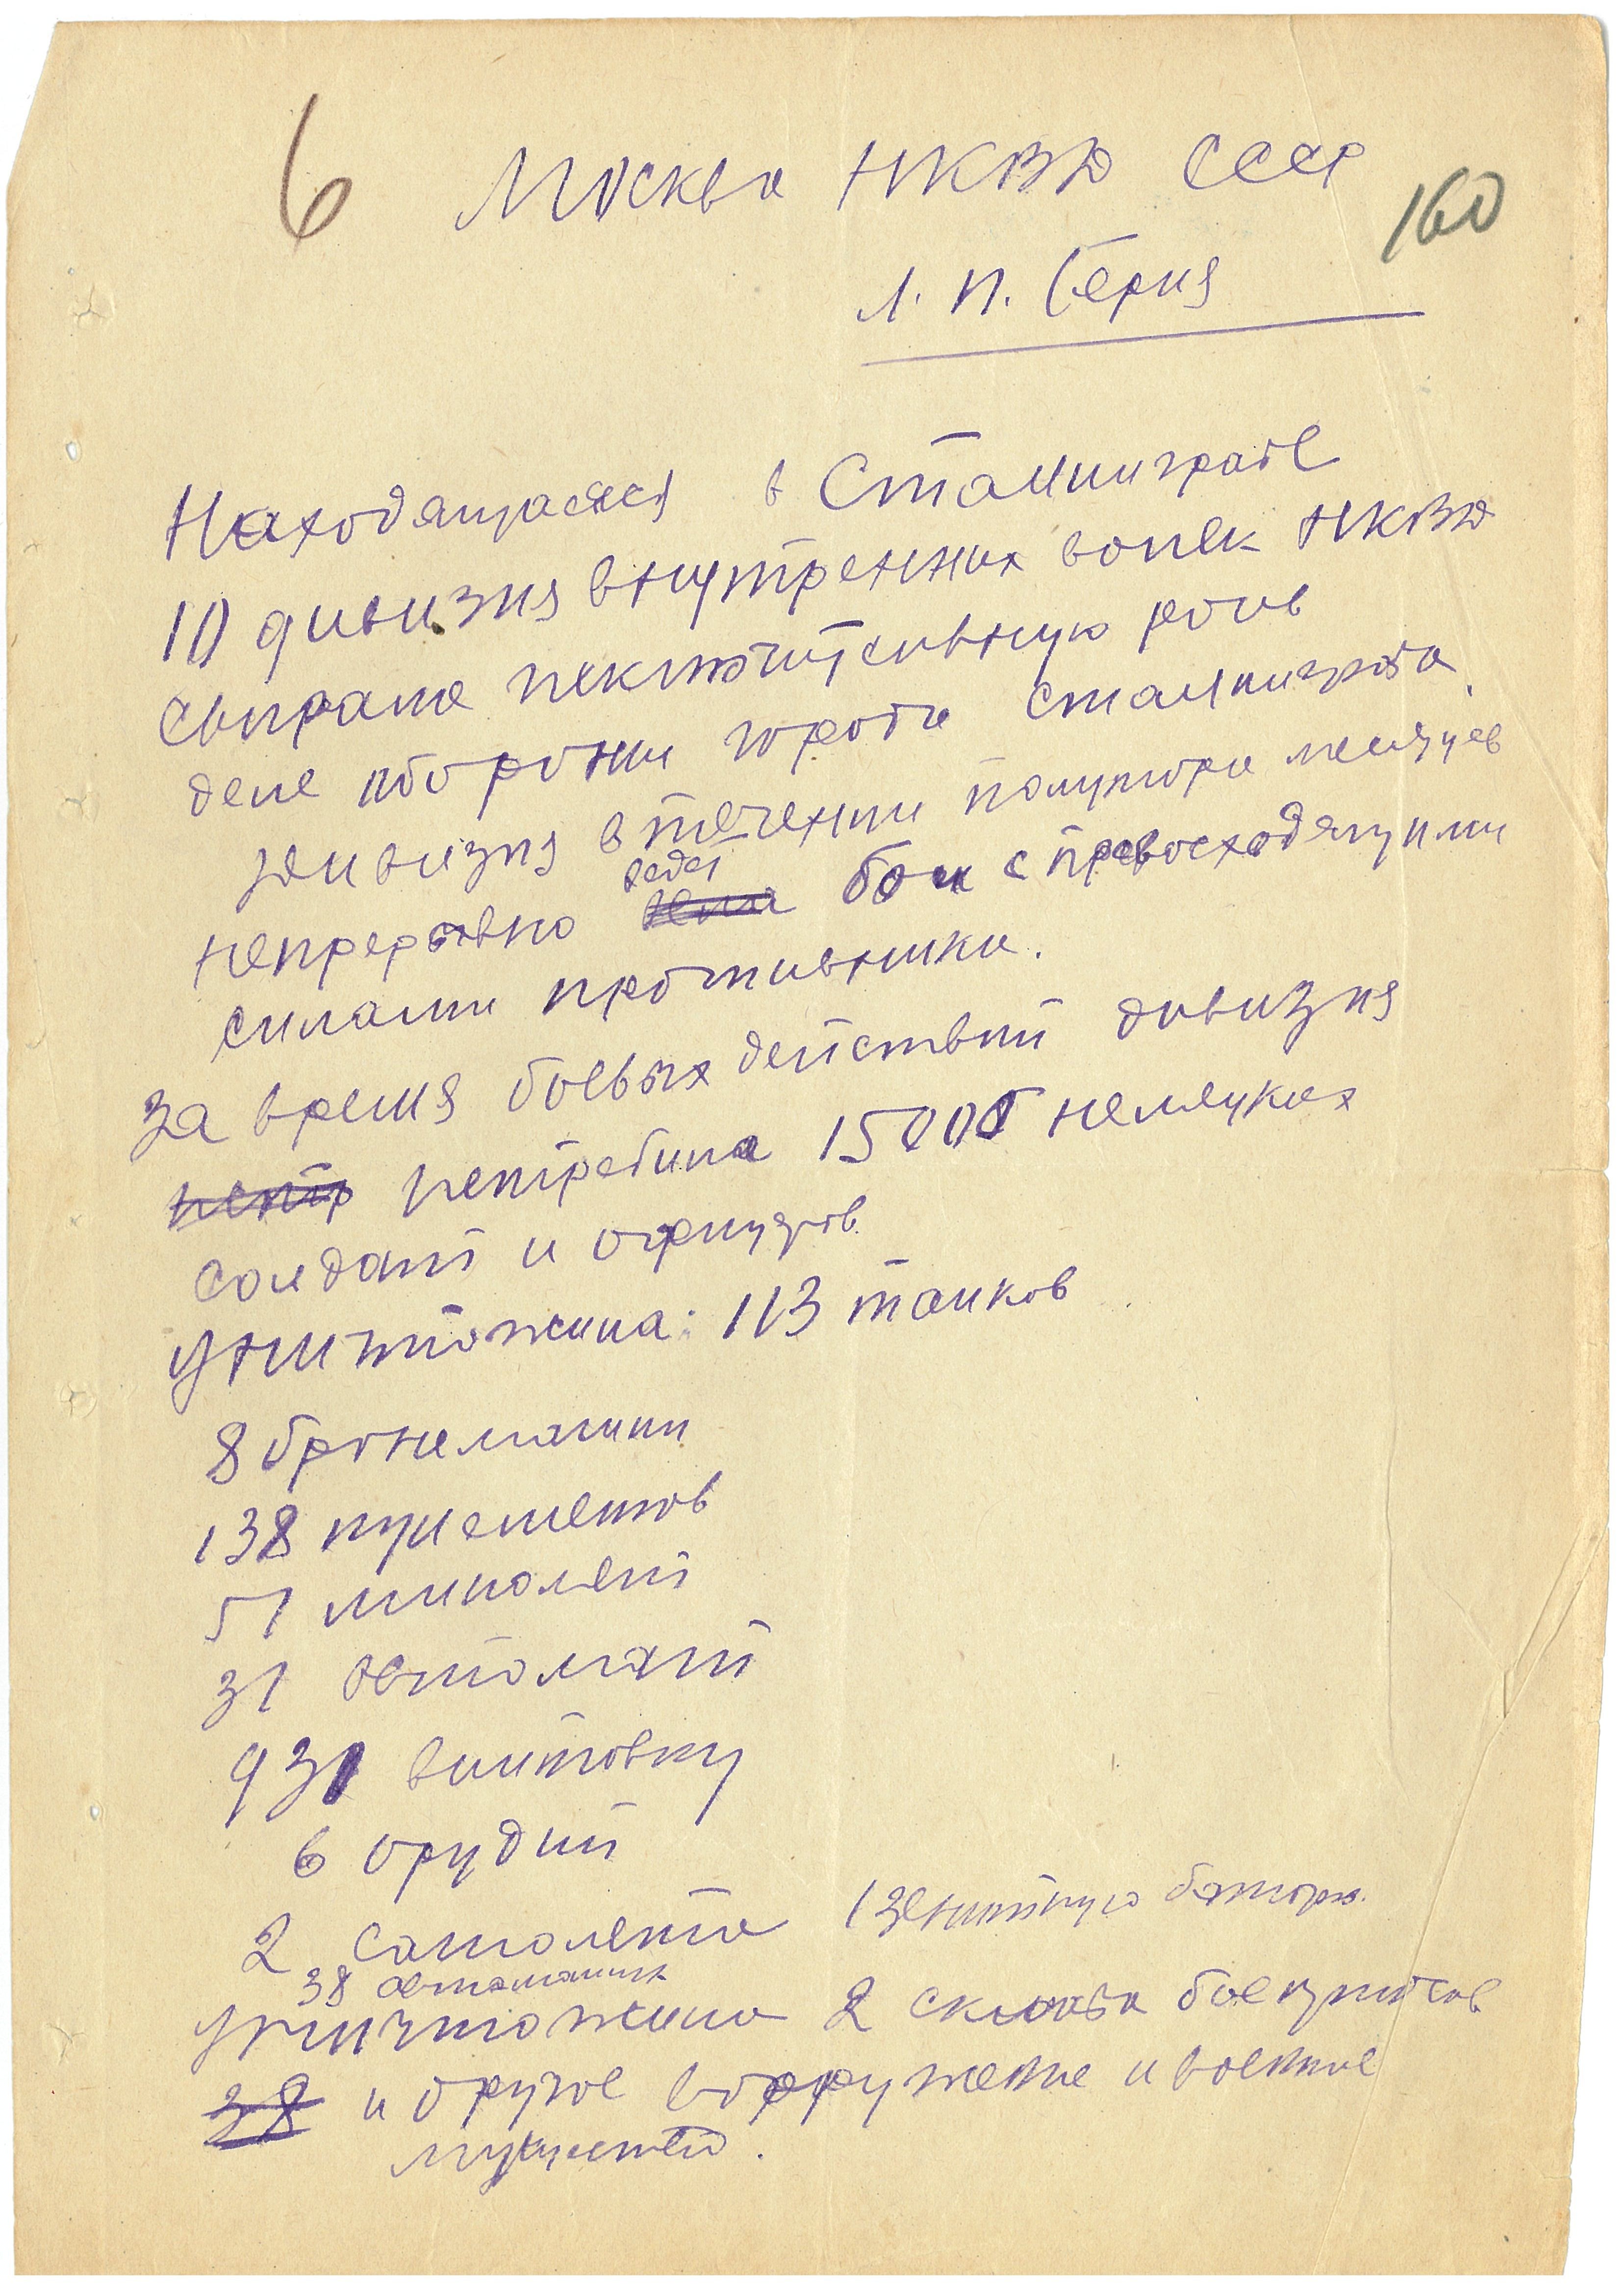 6
Москва НКВД СССР
160
Л. П. Берия
Находящаяся в Сталинграде
10 дивизия внутренних войск НКВД
сыграла исключительную роль
деле обороны города Сталинграда.
Дивизия в течении полутора месяцев
ведет
непрерывно вела бои с превосходящими
силами противника.
За время боевых действий дивизия
истр истребила 15000 немецких
солдат и офицеров
Уничтожила: 113 танков
8 бронемашин
138 пулеметов
51 миномет
31 автомат
931 винтовку
6 орудий
2 самолета 1 зенитную батарею.
38 автомашин
уничтожила 2 склада боеприпасов
38 и другое вооружение и военное
имущество.